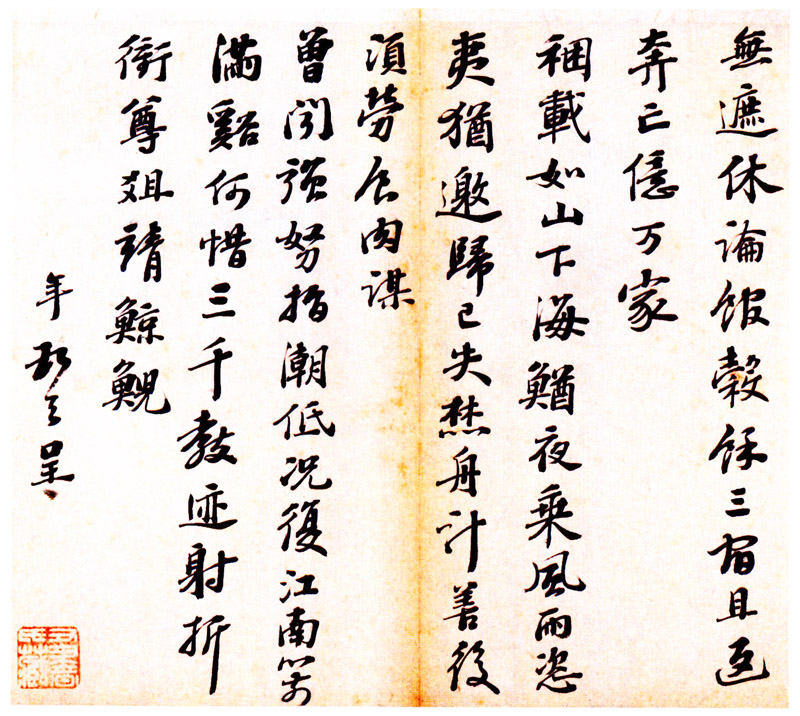 無遮休論館穀餘三宿且返
奔亡億万家
稛載如山下海鰌夜乗風雨恣
夷猶邀歸已失焚舟計善後
須勞食肉謀
曽聞強弩指潮低況復江南箭
滿谿何惜三千教迹射折
衝尊俎靖鯨鯢
年之呈